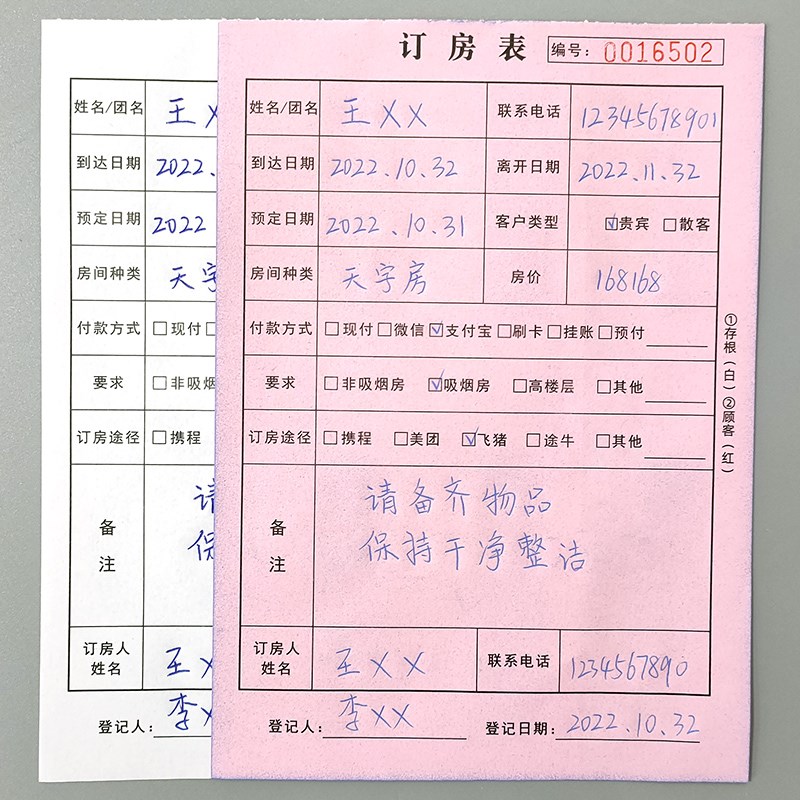 订房表 编号：0016502
姓名/团名 王XX 联系电话 12345678901
到达日期 2022.10.32 离开日期 2022.11.32
预定日期 2022.10.31 客户类型 ☑贵宾 □散客
房间种类 天字房 房价 168168
付款方式 □现付 □微信 ☑支付宝 □刷卡 □挂账 □预付
要求 □非吸烟房 ☑吸烟房 □高楼层 □其他
订房途径 □携程 □美团 ☑飞猪 □途牛 □其他
备注 请备齐物品
保持干净整洁
订房人姓名 王XX 联系电话 1234567890
登记人：李XX 登记日期：2022.10.32
①存根（白）②顾客（红）
姓名/团名 王X
到达日期 2022.
预定日期 2022
房间种类 天字
付款方式 □现付 □
要求 □非吸烟
订房途径 □携程
备注 请
保
订房人姓名 王X
登记人：李X